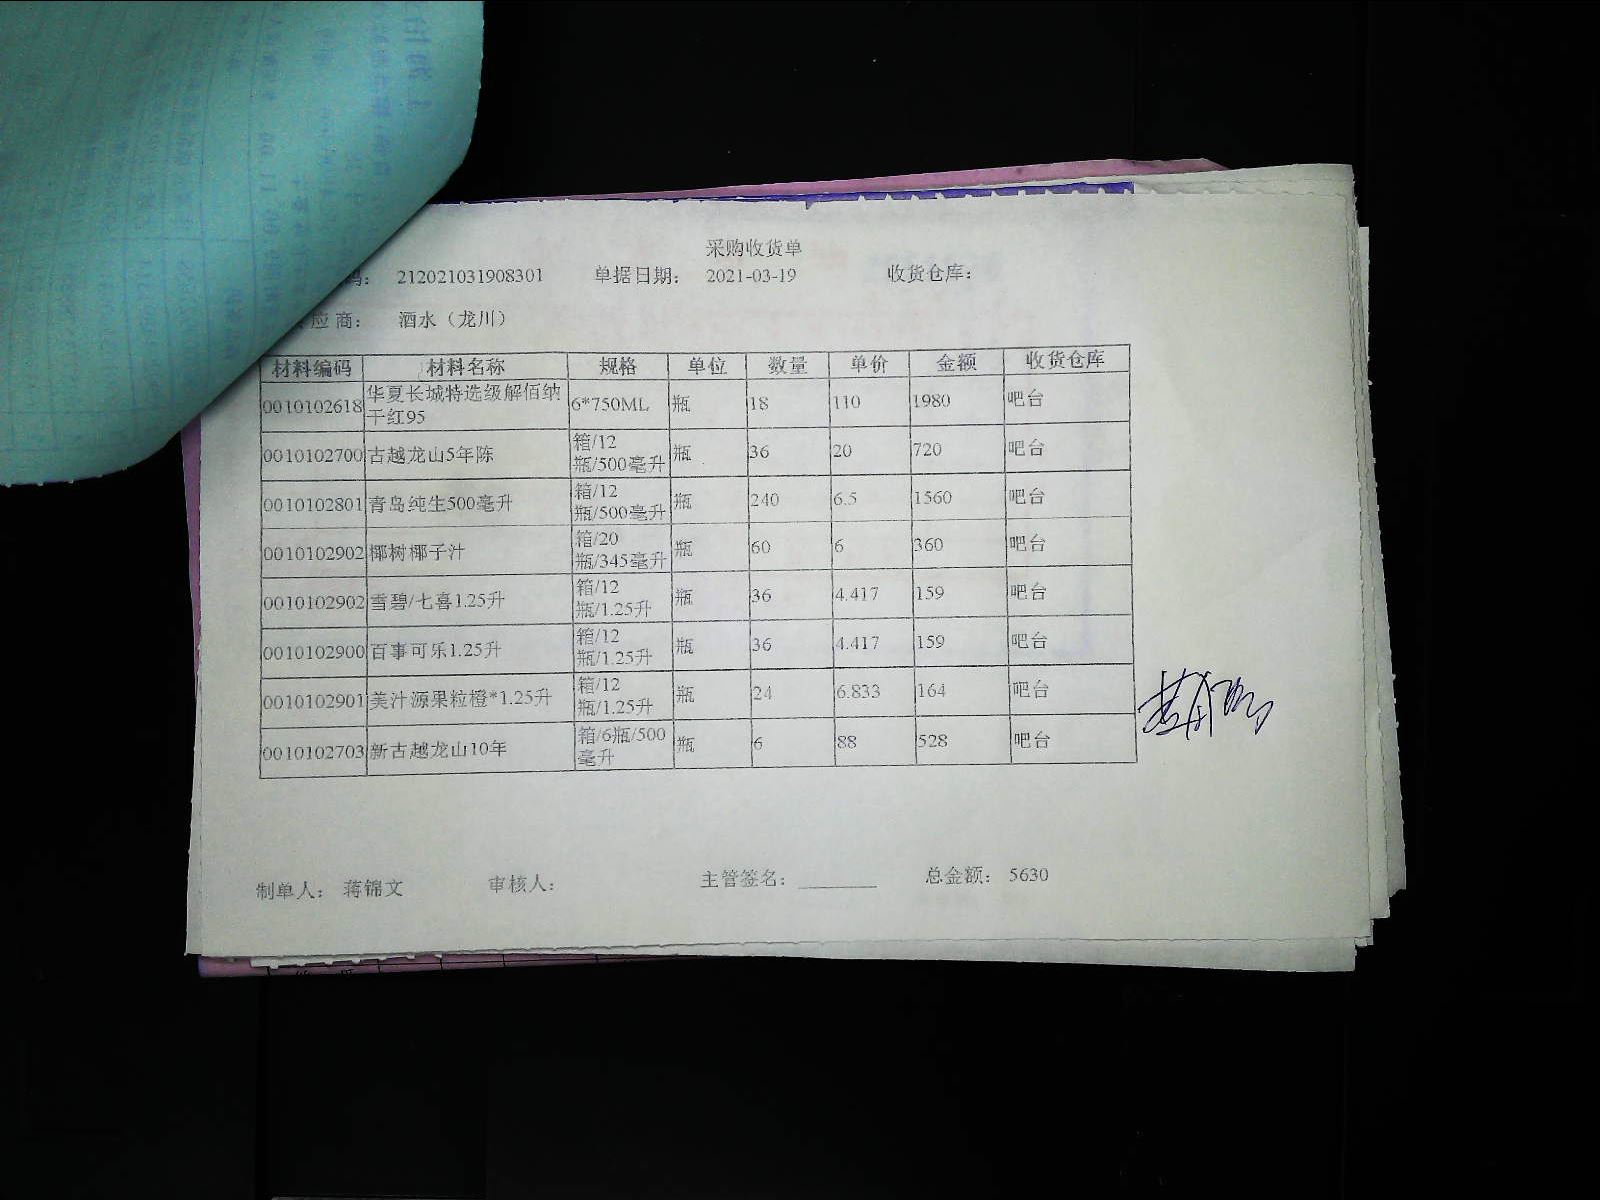 采购收货单
码： 212021031908301 单据日期： 2021-03-19 收货仓库：
应商： 酒水（龙川）
材料编码 材料名称 规格 单位 数量 单价 金额 收货仓库
0010102618 华夏长城特选级解佰纳干红95 6*750ML 瓶 18 110 1980 吧台
0010102700 古越龙山5年陈 箱/12瓶/500毫升 瓶 36 20 720 吧台
0010102801 青岛纯生500毫升 箱/12瓶/500毫升 瓶 240 6.5 1560 吧台
0010102902 椰树椰子汁 箱/20瓶/345毫升 瓶 60 6 360 吧台
0010102902 雪碧/七喜1.25升 箱/12瓶/1.25升 瓶 36 4.417 159 吧台
0010102900 百事可乐1.25升 箱/12瓶/1.25升 瓶 36 4.417 159 吧台
0010102901 美汁源果粒橙*1.25升 箱/12瓶/1.25升 瓶 24 6.833 164 吧台
0010102703 新古越龙山10年 箱/6瓶/500毫升 瓶 6 88 528 吧台
制单人： 蒋锦文 审核人： 主管签名： 总金额： 5630